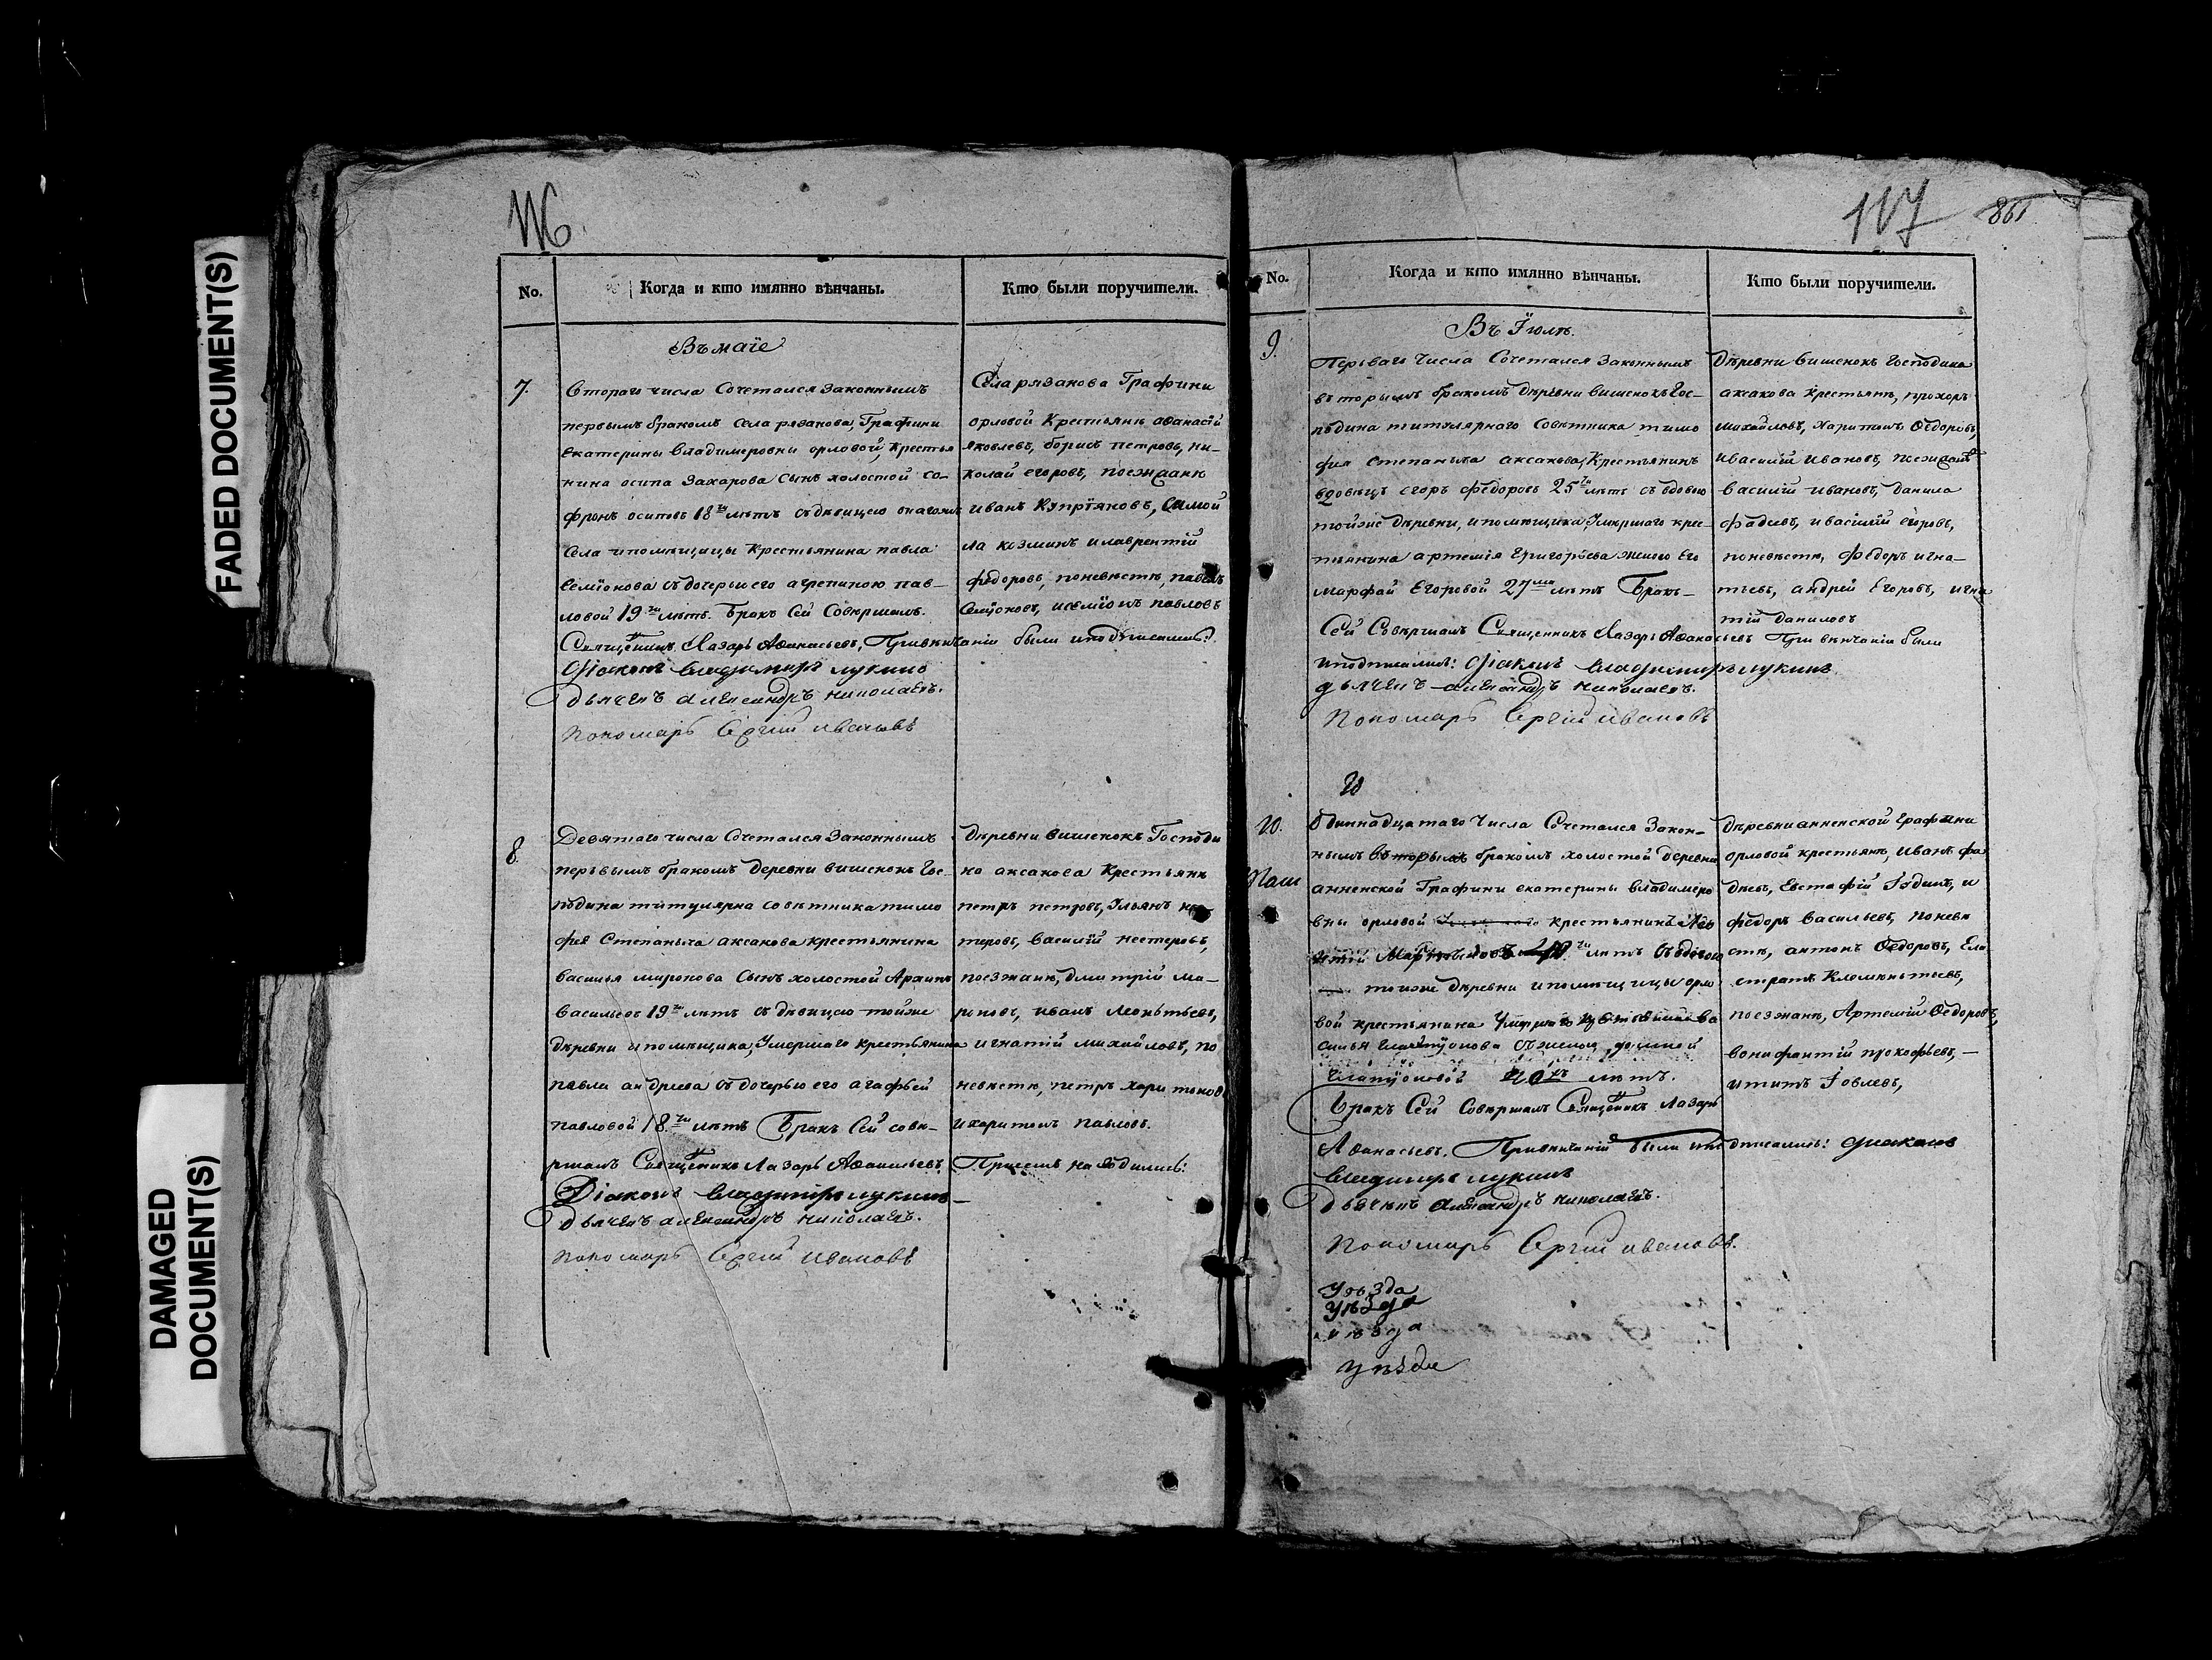 FADED DOCUMENT(S)
DAMAGED
DOCUMENT(S)
116
No.
Когда и кто имянно вѣнчаны.
Кто были поручители.
Въ маіе
7.
Втораго числа Сочетался законнымъ
первымъ бракомъ Села рязанова, Графини
Екатерины Владимеровны орловой, Крестья
нина осипа Захарова сынъ холостой со-
фронъ осиповъ 18ти лѣтъ съ девицею онагожъ
Села и помѣщицы Крестьянина павла
Семіонова съ дочерью его агрепиною пав-
ловой 19ти лѣтъ. Бракъ Сей Совершалъ.
Священникъ Лазарь Аѳанасьевъ, При венчаніи были и подписались:
Діаконъ Владимиръ лукинъ
дьячекъ александръ николаевъ.
Пономарь Сергій ивановъ
Села рязанова Графини
орловой Крестьяне аѳанасій
яковлевъ, борисъ петровъ, ни-
колай егоровъ, поезжане
иванъ Купріяновъ, Самой
ла козминъ и лаврентій
федоровъ, поневесте, павелъ
Семіоновъ, и семіонъ павловъ
8.
Девятаго числа Сочетался Законнымъ
первымъ бракомъ деревни вишенокъ Гос-
подина титулярна советника тимо
фея Степаныча аксакова крестьянина
василья миронова Сынъ холостой Архипъ
васильевъ 19ти летъ съ девицею тойже
деревни и помещика, Умершаго крестьянина
павла андреева съ дочерью его агафьей
павловой 18ти летъ Бракъ Сей сове-
ршалъ Священникъ Лазарь Аѳанасьевъ При семъ находились:
Діаконъ Владимиръ лукинъ
дьячекъ александръ николаевъ.
Пономарь Сергій ивановъ
деревни вишенокъ Господи
на аксакова Крестьяне
петръ петровъ, Ульянъ не
теровъ, василій нестеровъ,
поезжане, дмитрій ми-
роновъ, иванъ леонтьевъ,
игнатій михайловъ, по
невесте, петръ харитоновъ
и харитонъ павловъ.
117
861
No.
Когда и кто имянно вѣнчаны.
Кто были поручители.
Въ Іюлѣ.
9.
Перьваго Числа Сочетался Законнымъ
вторымъ бракомъ деревни вишенокъ Гос-
подина титулярнаго Советника тимо
фея степаныча аксакова, Крестьянинъ
вдовецъ егоръ федоровъ 25ти летъ съ вдовою
тойже деревни, и помещика Умершаго крес-
тьянина артемія григорьева женою Его
марфай Егоровой 27ми летъ Бракъ
Сей Совершалъ Священникъ Лазарь Аѳанасьевъ При венчаніи были
и подписались: Діаконъ Владимиръ лукинъ
дьячекъ александръ николаевъ.
Пономарь Сергій ивановъ
Деревни Вишенокъ господина
аксакова крестьяне, прохоръ
михайловъ, харитонъ Ѳедоровъ,
и василій ивановъ, поезжане
василій ивановъ, данила
фадеевъ, и василій егоровъ,
поневесте, федоръ игна-
тьевъ, андрей Егоровъ, игна
тій даниловъ
10
10.
Одиннадцатаго Числа Сочетался Закон-
нымъ вторымъ бракомъ холостой деревни
анненской Графини екатерины владимеро
вны орловой крестьянинъ
Мартыновъ летъ съ вдовою
тоиже деревни и помещицы орло
вой крестьянина Умершаго ва
силья съ женою
летъ.
Бракъ Сей Совершалъ Священникъ Лазарь
Аѳанасьевъ. При венчаніи были и подписались: Діаконъ
Владимиръ лукинъ
дьячекъ александръ николаевъ.
Пономарь Сергій ивановъ.
деревни анненской Графини
орловой крестьяне, Иванъ фа
деевъ, Евстафій Родинъ, и
федоръ Васильевъ, поневе
сте, антонъ Ѳедоровъ, Ели
стратъ Клементьевъ,
поезжане, Артемій Ѳедоровъ,
вонифантій прокофьевъ, —
и титъ Іовлевъ,
Уѣзда
Уѣзда
уѣзда
уѣзда